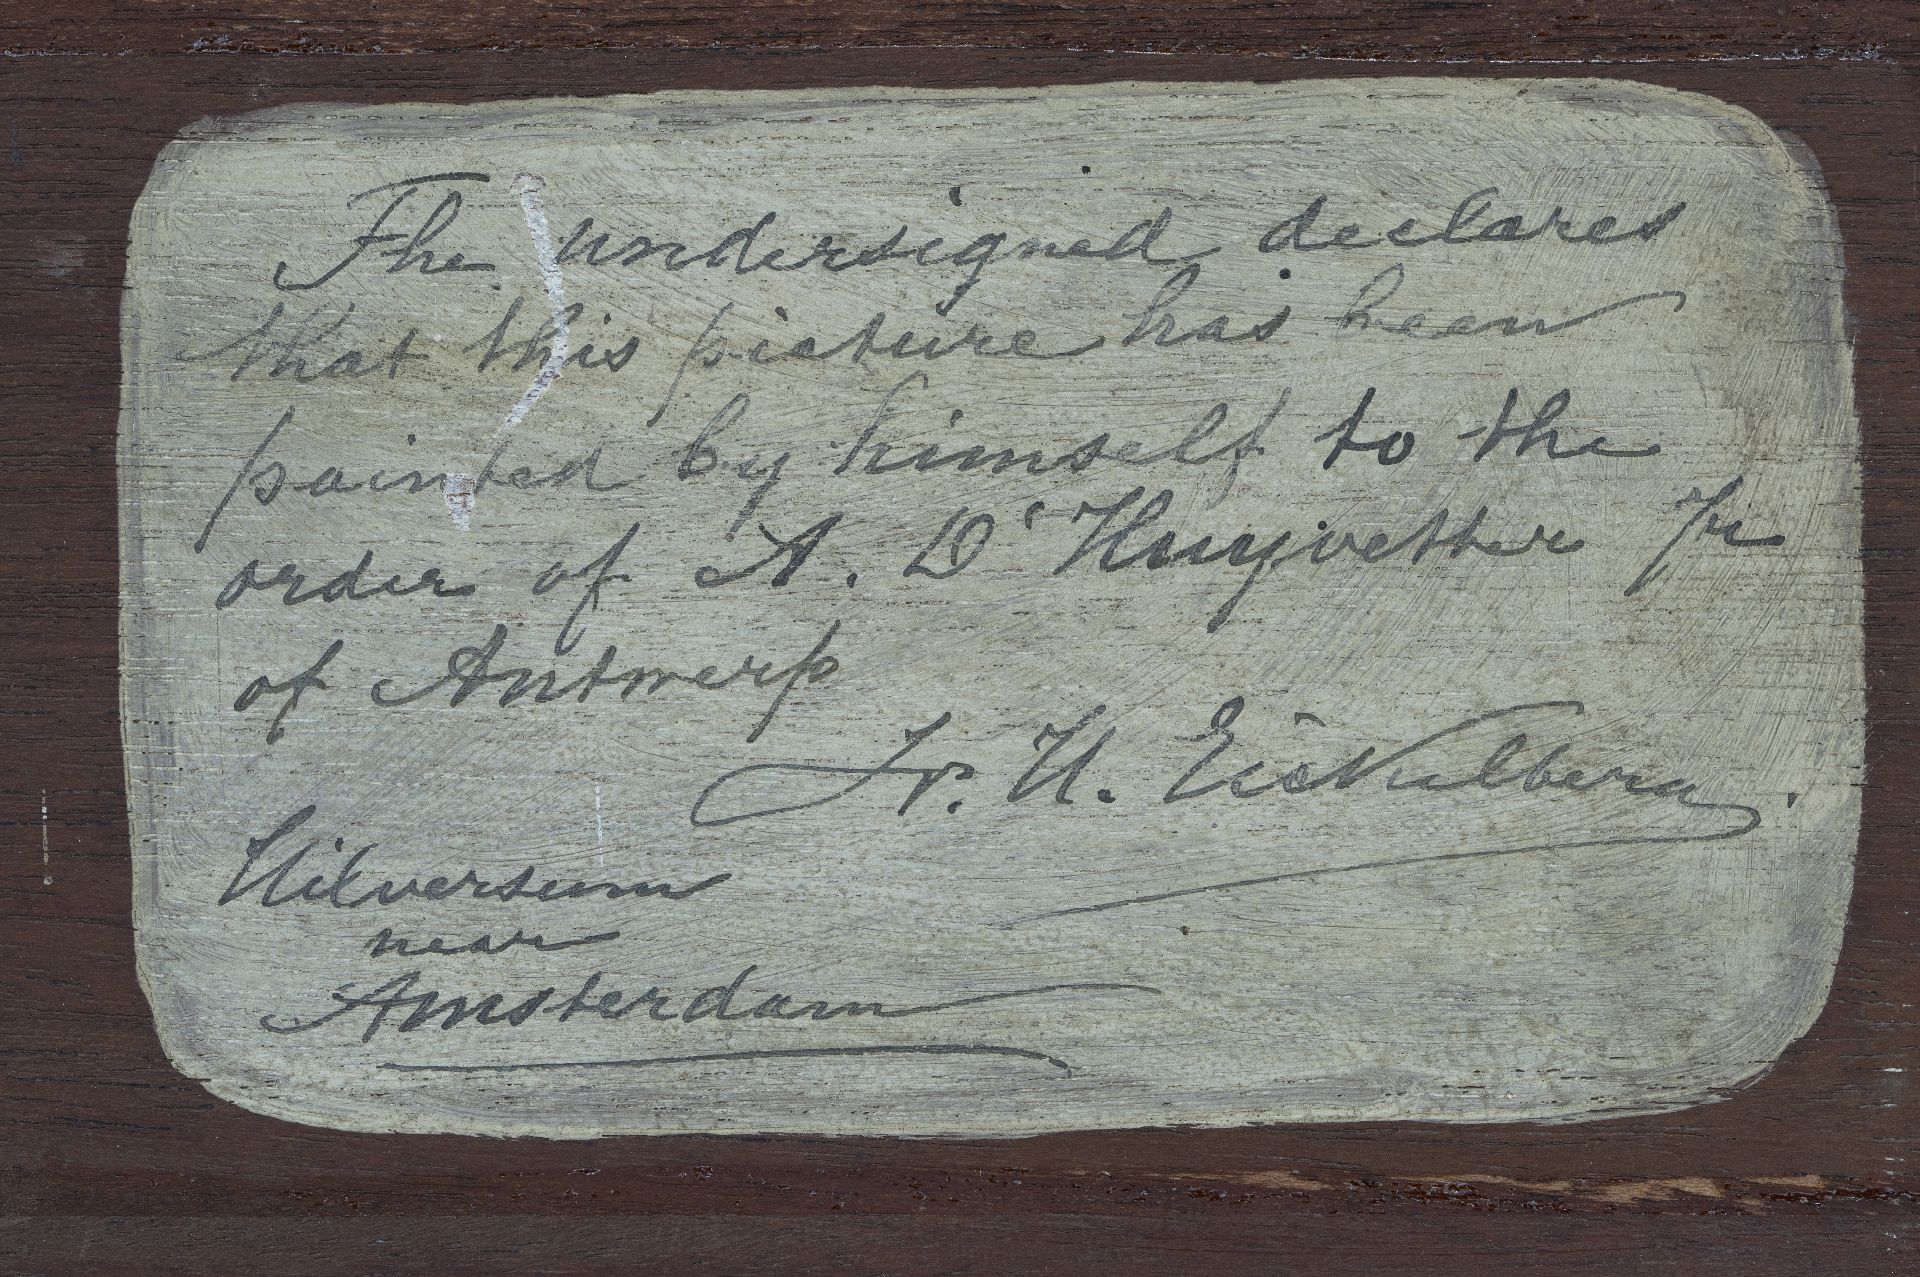 The undersigned declares
that this picture has been
painted by himself to the
order of A. D'Huyvetter Jr
of Antwerp
Jr. H. Eickelberg.
Hilversum
near
Amsterdam